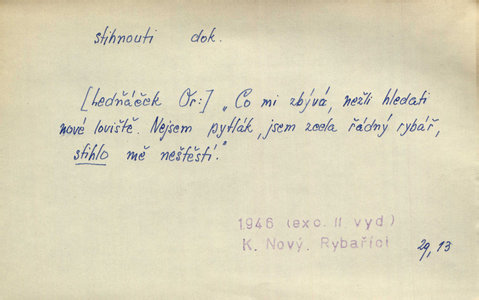 stihnouti dok.
[Ledňáček Or:] „Co mi zbývá, nežli hledati
nové loviště. Nejsem pytlák, jsem zcela řádný rybář,
stihlo mě neštěstí."
1946 (exc. II vyd)
K. Nový. Rybaříci
29, 13